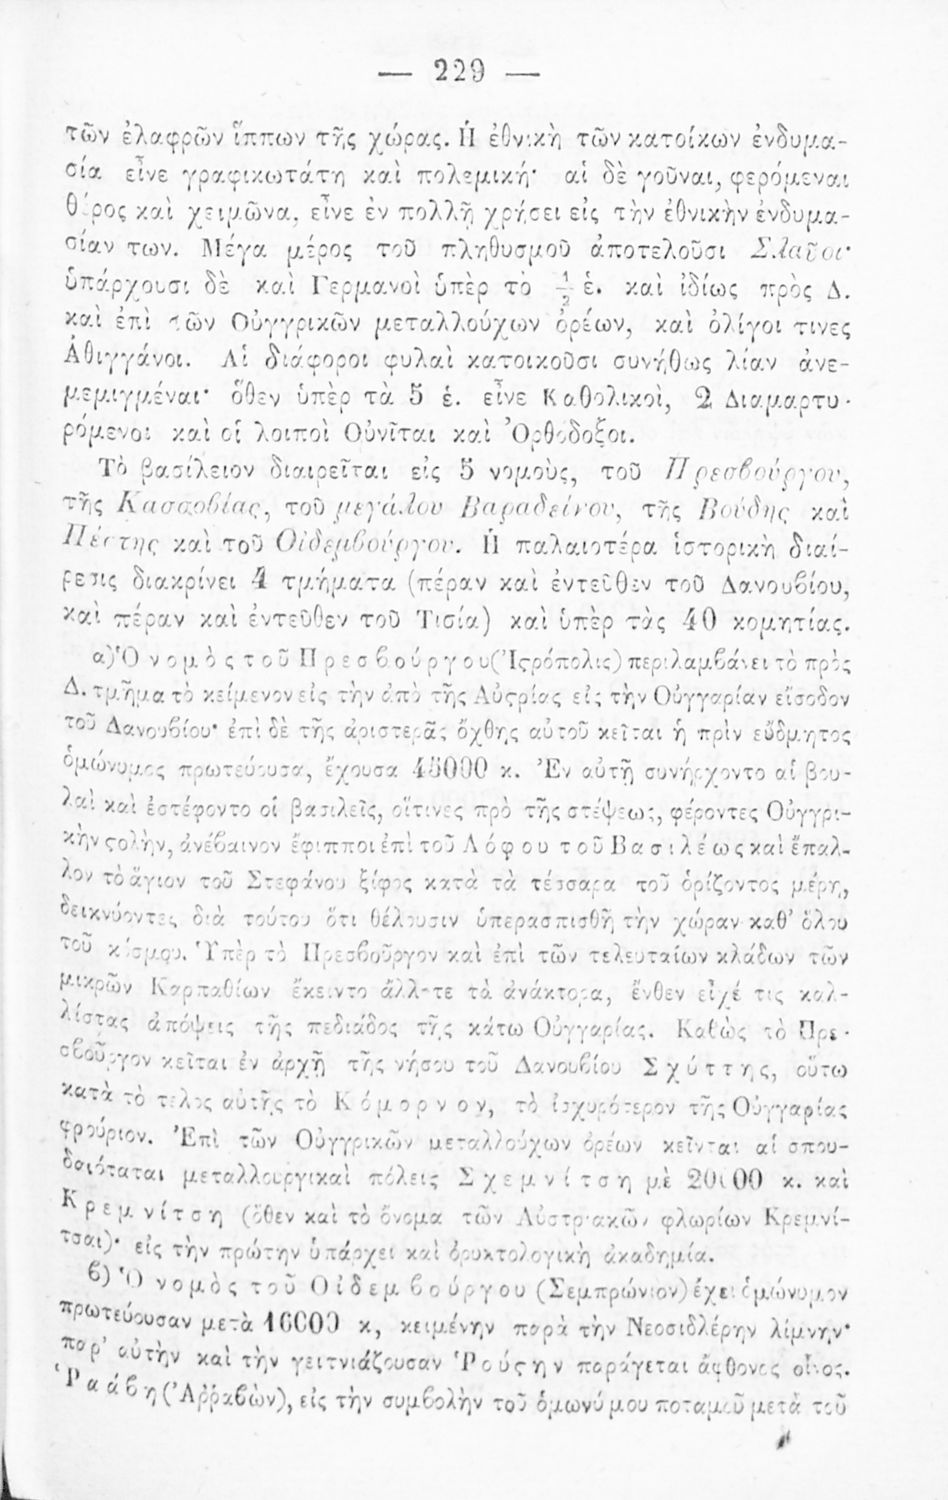 — 229 —
τῶν ἐλαφρῶν ἵππων τῆς χώρας. Ἡ ἐθνικὴ τῶν κατοίκων ἐνδυμα-
σία εἶνε γραφικωτάτη καὶ πολεμική· αἱ δὲ γοῦναι, φερόμεναι
θέρος καὶ χειμῶνα, εἶνε ἐν πολλῇ χρήσει εἰς τὴν ἐθνικὴν ἐνδυμα-
σίαν των. Μέγα μέρος τοῦ πληθυσμοῦ ἀποτελοῦσι Σλαῦοι·
ὑπάρχουσι δὲ καὶ Γερμανοὶ ὑπὲρ τὸ ½ ἑ. καὶ ἰδίως πρὸς Δ.
καὶ ἐπὶ τῶν Οὑγγρικῶν μεταλλούχων ὀρέων, καὶ ὀλίγοι τινες
Ἀθιγγάνοι. Αἱ διάφοροι φυλαὶ κατοικοῦσι συνήθως λίαν ἀνε-
μεμιγμέναι· ὅθεν ὑπὲρ τὰ 5 ἑ. εἶνε Καθολικοὶ, 2 Διαμαρτυ-
ρόμενοι καὶ οἱ λοιποὶ Οὐνῖται καὶ Ὀρθόδοξοι.
Τὸ βασίλειον διαιρεῖται εἰς 5 νομοὺς, τοῦ Πρεσβούργου,
τῆς Κασσοβίας, τοῦ μεγάλου Βαραδείνου, τῆς Βούδης καὶ
Πέστης καὶ τοῦ Οἰδεμβούργου. Ἡ παλαιοτέρα ἱστορικὴ διαί-
ρεσις διακρίνει 4 τμήματα (πέραν καὶ ἐντεῦθεν τοῦ Δανουβίου,
καὶ πέραν καὶ ἐντεῦθεν τοῦ Τισία) καὶ ὑπὲρ τὰς 40 κομητίας.
α) Ὁ νομὸς τοῦ Πρεσβούργου (Ἰςρόπολις) περιλαμβάνει τὸ πρὸς
Δ. τμῆμα τὸ κείμενον εἰς τὴν ἀπὸ τῆς Αὐςρίας εἰς τὴν Οὑγγαρίαν εἴσοδον
τοῦ Δανουβίου· ἐπὶ δὲ τῆς ἀριστερᾶς ὄχθης αὐτοῦ κεῖται ἡ πρὶν εὔδμητος
ὁμώνυμος πρωτεύουσα, ἔχουσα 45000 κ. Ἐν αὐτῇ συνήρχοντο αἱ βου-
λαὶ καὶ ἐστέφοντο οἱ βασιλεῖς, οἵτινες πρὸ τῆς στέψεως, φέροντες Οὑγγρι-
κὴν ςολὴν, ἀνέβαινον ἔφιπποι ἐπὶ τοῦ Λόφου τοῦ Βασιλέως καὶ ἔπαλ-
λον τὸ ἅγιον τοῦ Στεφάνου ξίφος κατὰ τὰ τέσσαρα τοῦ ὁρίζοντος μέρη,
δεικνύοντες διὰ τούτου ὅτι θέλουσιν ὑπερασπισθῆ τὴν χώραν καθ' ὅλου
τοῦ κόσμου. Ὑπὲρ τὸ Πρεσβοῦργον καὶ ἐπὶ τῶν τελευταίων κλάδων τῶν
μικρῶν Καρπαθίων ἔκειντο ἄλλοτε τὰ ἀνάκτορα, ἔνθεν εἶχέ τις καλ-
λίστας ἀπόψεις τῆς πεδιάδος τῆς κάτω Οὑγγαρίας. Καθὼς τὸ Πρε-
σβοῦργον κεῖται ἐν ἀρχῇ τῆς νήσου τοῦ Δανουβίου Σχύττης, οὕτω
κατὰ τὸ τέλος αὐτῆς τὸ Κόμορνον, τὸ ἰσχυρότερον τῆς Οὑγγαρίας
φρούριον. Ἐπὶ τῶν Οὑγγρικῶν μεταλλούχων ὀρέων κεῖνται αἱ σπου-
δαιόταται μεταλλουργικαὶ πόλεις Σχεμνίτση μὲ 20000 κ. καὶ
Κρεμνίτση (ὅθεν καὶ τὸ ὄνομα τῶν Αὐστριακῶν φλωρίων Κρεμνί-
τσαι)· εἰς τὴν πρώτην ὑπάρχει καὶ ὀρυκτολογικὴ ἀκαδημία.
β) Ὁ νομὸς τοῦ Οἰδεμβούργου (Σεμπρώνιον) ἔχει ὁμώνυμον
πρωτεύουσαν μετὰ 16000 κ, κειμένην παρὰ τὴν Νεοσιδλέρην λίμνην·
παρ' αὐτὴν καὶ τὴν γειτνιάζουσαν Ῥούςην παράγεται ἄφθονος οἶνος.
Ῥαάβη (Ἀῤῥαβὼν), εἰς τὴν συμβολὴν τοῦ ὁμωνύμου ποταμοῦ μετὰ τοῦ